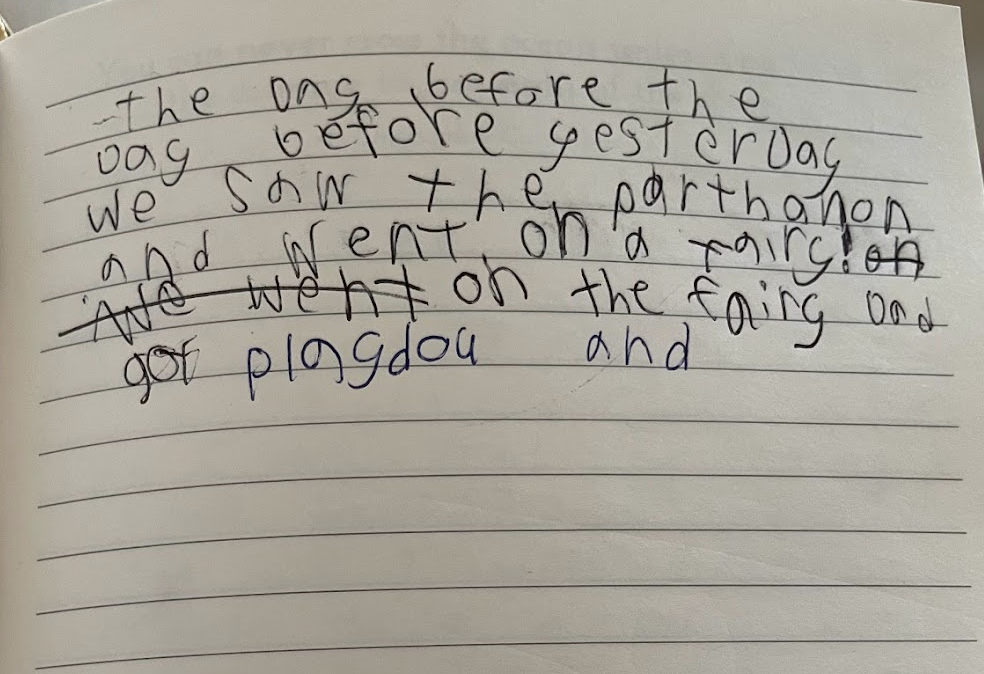 the Day before the
Day before yesterDay
we saw the parthanon
and went on a fairy! on
We went on the fairy Dad
got playdou and